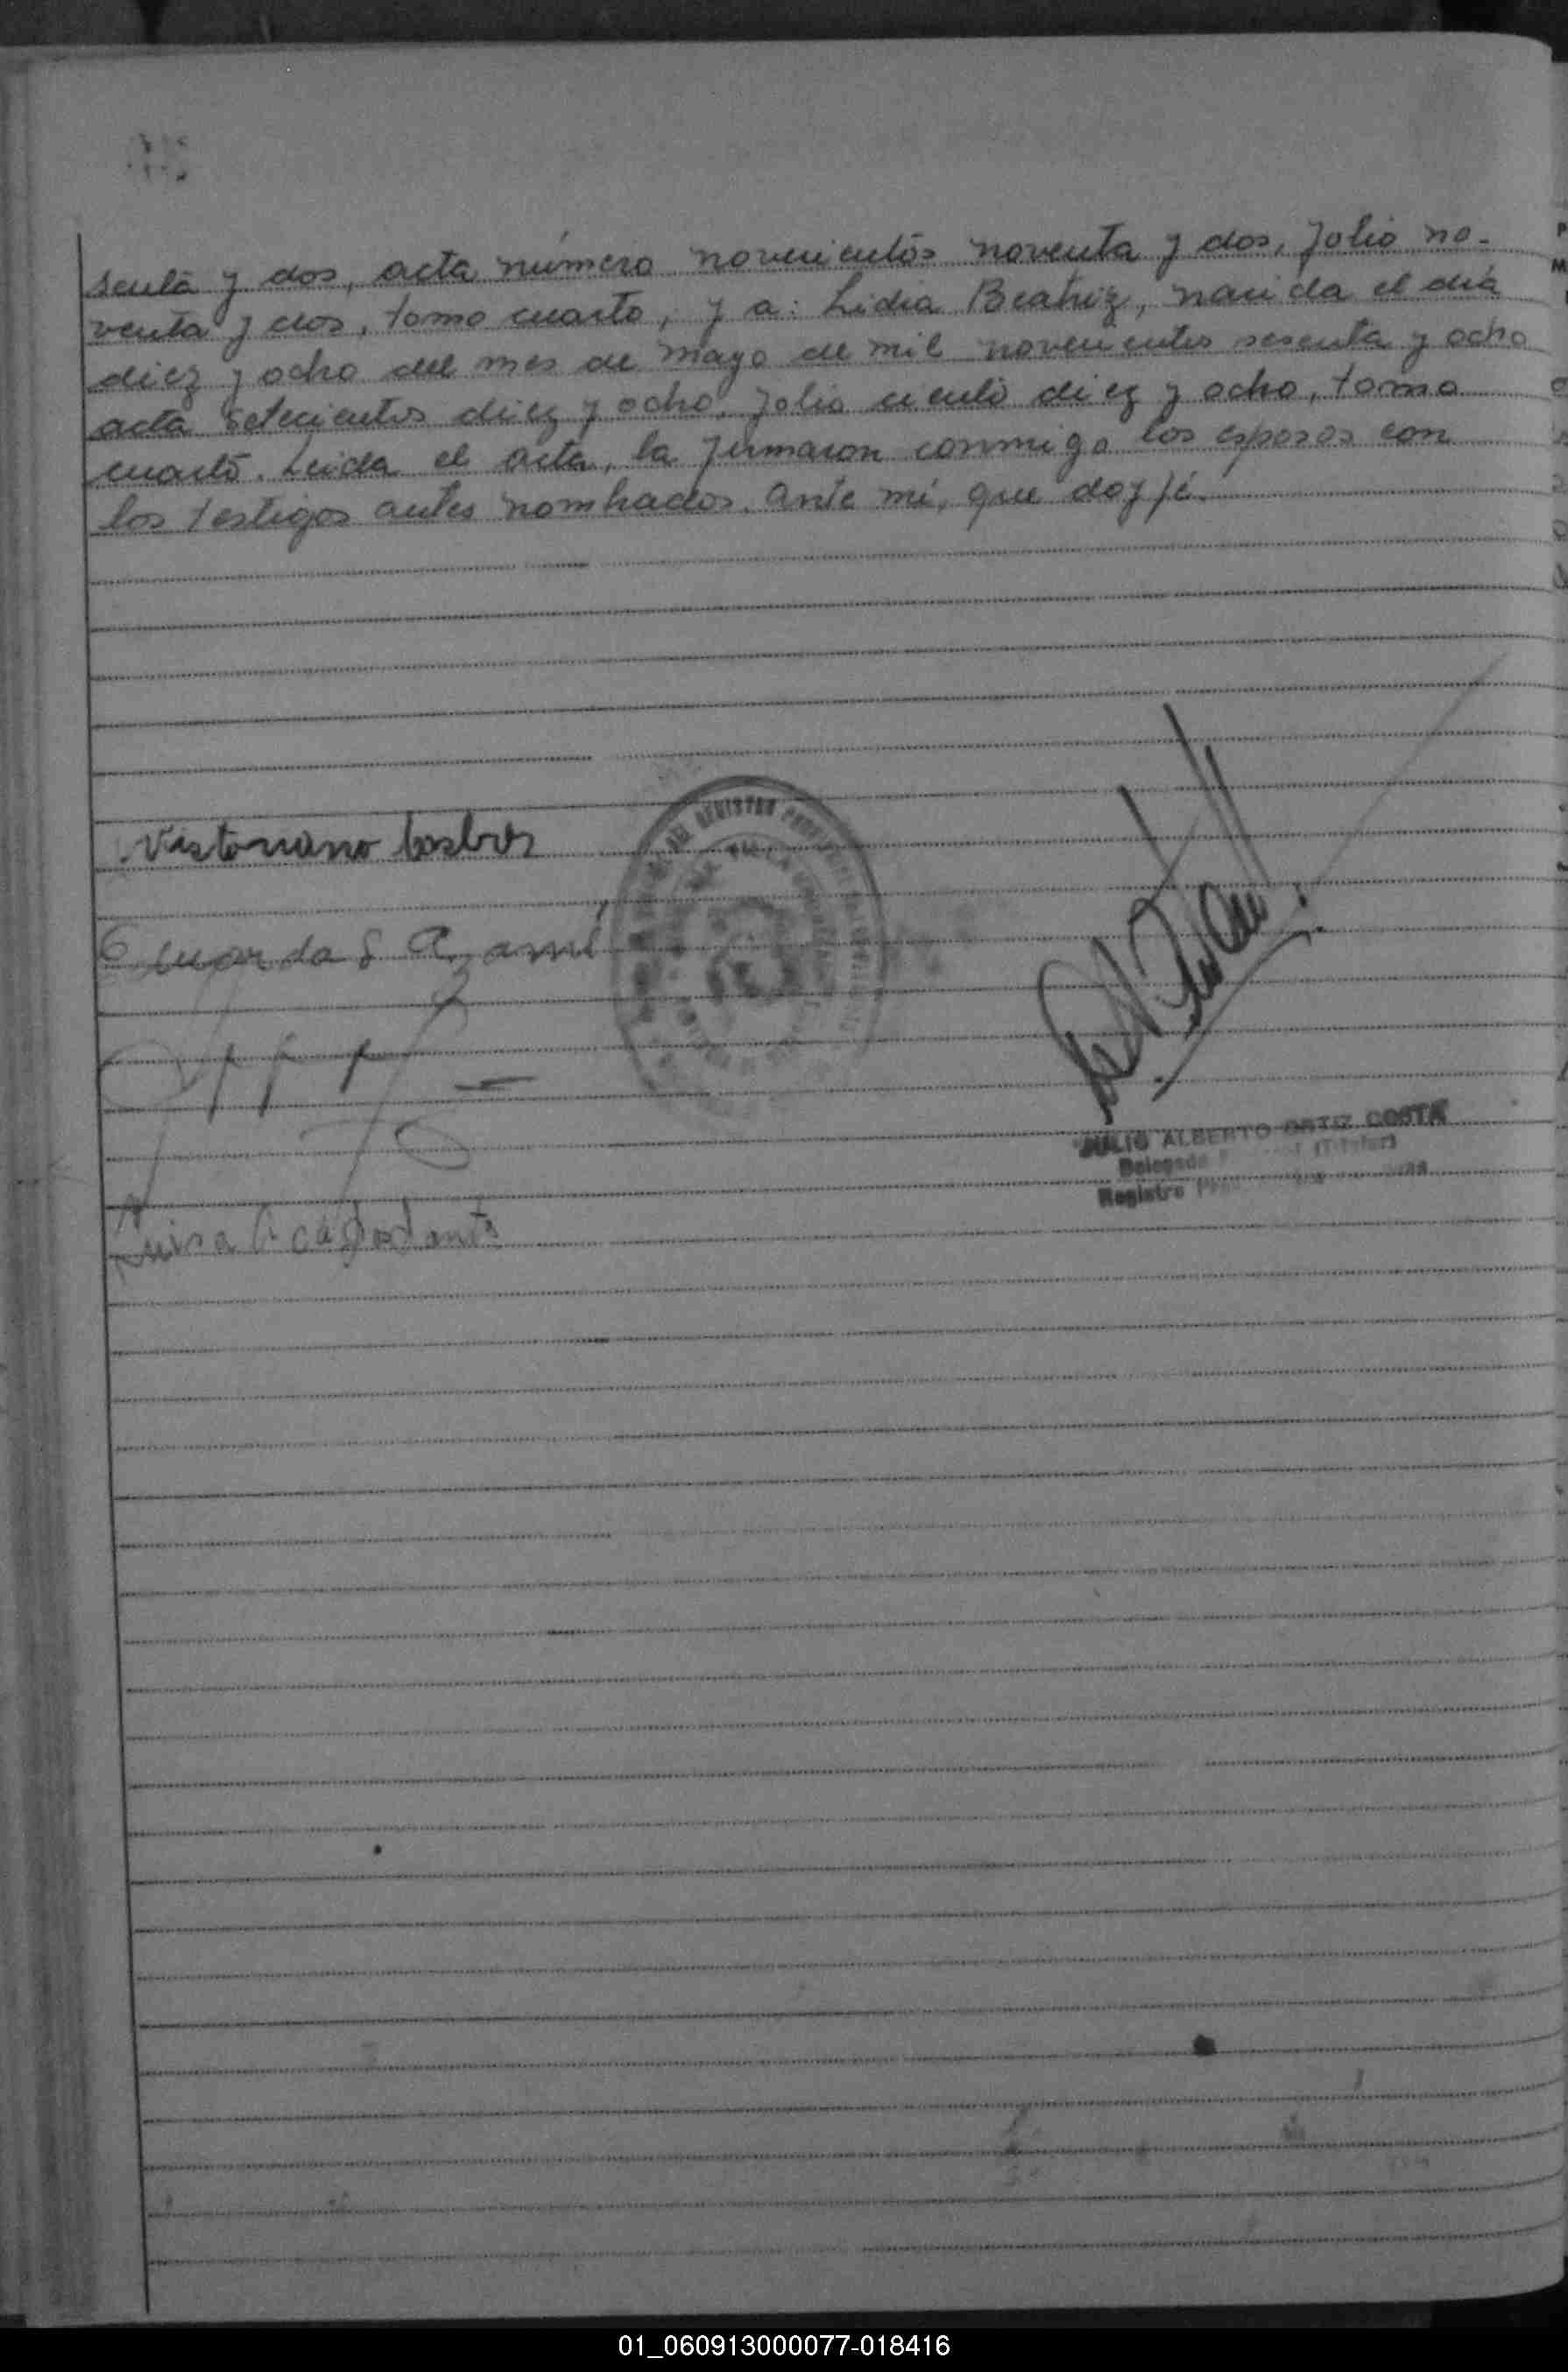 senta y dos, acta número novecientos noventa y dos, folio no-
venta y dos, tomo cuarto, y a: Lidia Beatriz, nacida el día
diez y ocho del mes de mayo de mil novecientos sesenta y ocho
acta setecientos diez y ocho, folio ciento diez y ocho, tomo
cuarto. Leida el acta, la firmaron conmigo los esposos con
los testigos antes nombrados. ante mí, que doy fé.
JULIO ALBERTO ORTIZ COSTA
Delegado (Titular)
Registro
Luisa
01_060913000077-018416